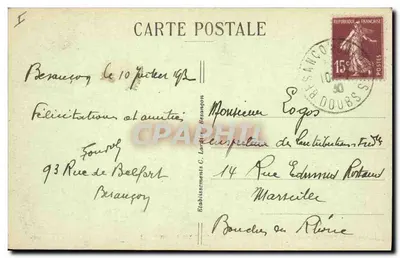 CARTE POSTALE
REPUBLIQUE FRANÇAISE
15c
POSTES
BESANÇON
DOUBS
30
Besançon le 10
Félicitations et amitiés
93 Rue de Belfort
Besançon
Etablissements C. Besançon
CPARAMA
Monsieur Logos
Inspecteur des Contributions
14 Rue Edmond Rostand
Marseille
Bouches du Rhône